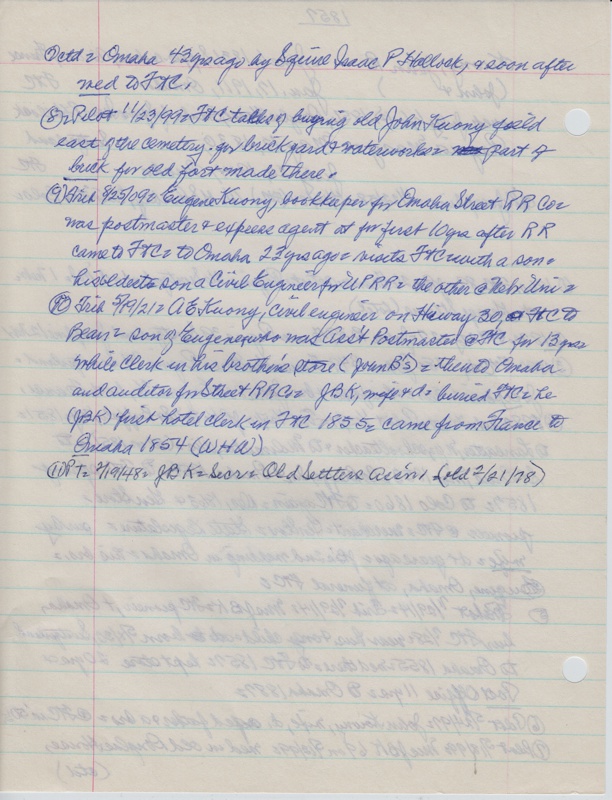 (ctd) = Omaha 43 yrs ago by Squire Isaac P Hallock, & soon after
med to FtC.
(8) = Pilot 11/23/99 = FtC talks of buying old John Kuony field
east of the cemetery for brickyard & waterworks = part of
brick for old fort made there.
(9) Trib 5/25/09 = Eugene Kuony, bookkeeper for Omaha Street RR Co =
was postmaster & express agent at for first 10 yrs after RR
came to FtC = to Omaha 22 yrs ago = visits FtC with a son =
his oldest = son a Civil Engineer for UPRR = the other @ Neb Uni =
(10) Trib 5/19/21 = A E Kuony, civil engineer on Hiway 30, FtC to
Bear = son of Eugene who was Ass't Postmaster @ FtC for 13 yrs
while clerk in his brothers store (John B's) = then to Omaha
and auditor for Street RR Co = JBK, wife & d: buried FtC = he
(JBK) first hotel clerk in FtC 1855 = came from France to
Omaha 1854 (WHW)
(11) PT = 2/19/48 = JBK = Secr = Old Settlers Ass'n (old 2/21/78)